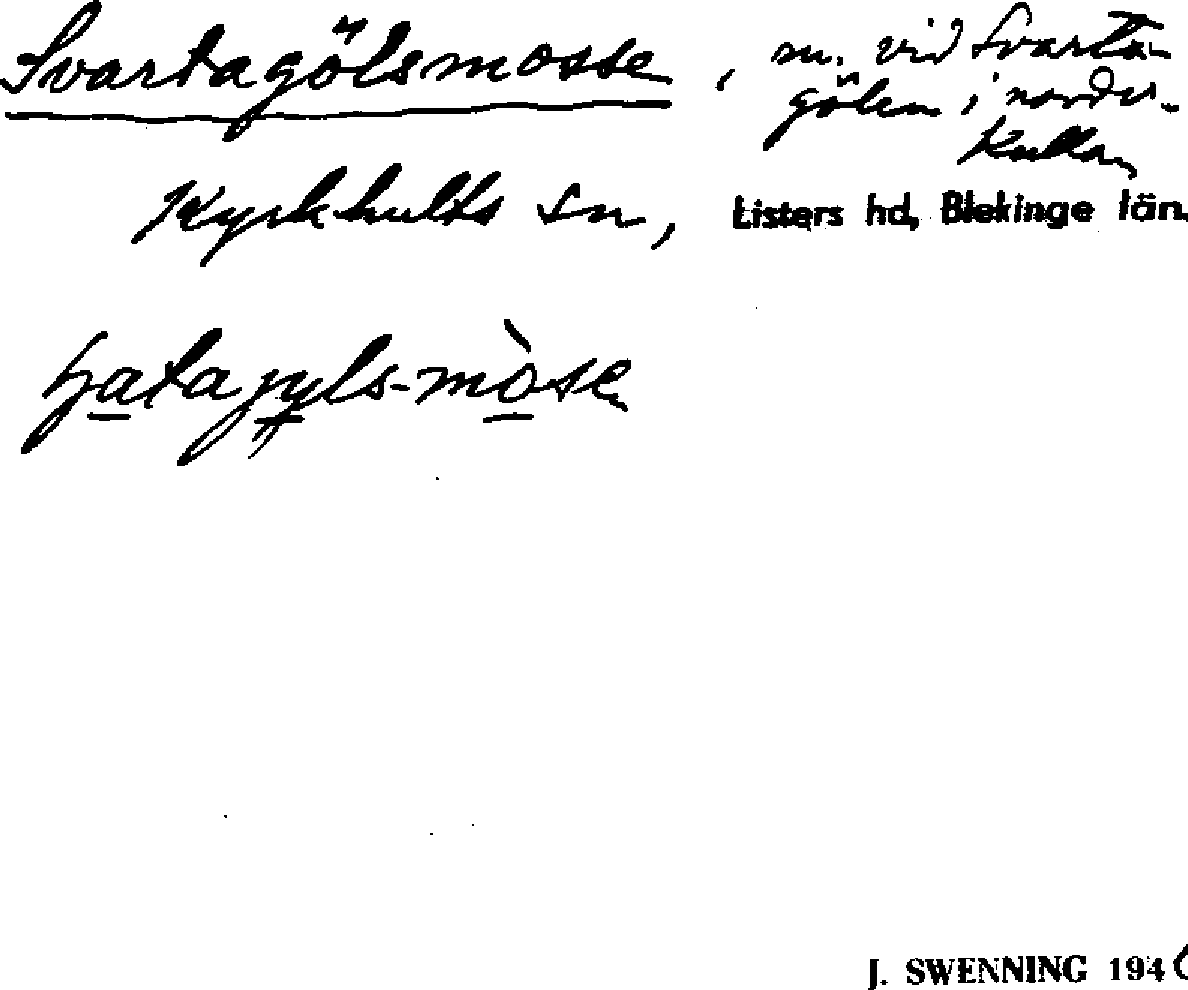 Svartagölsmosse, m. vid Svarta-
gölen i norder-
Kullan
Kyrkhults sn, Listers hd, Blekinge län.
J. SWENNING 194